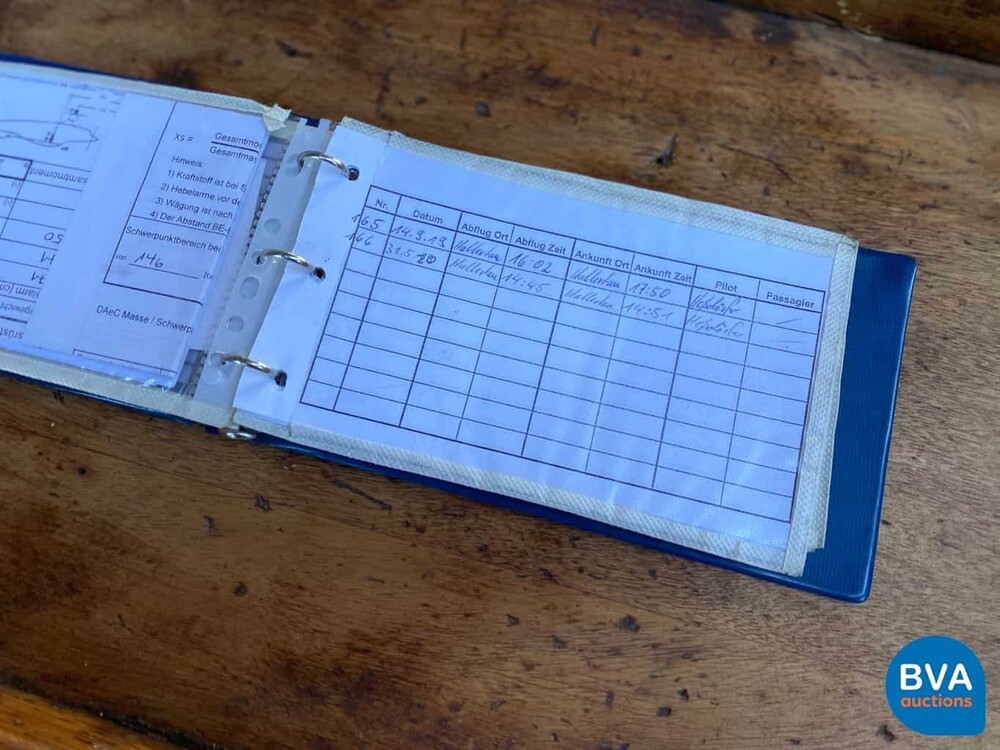 xs = Gesamtmo
Gesamtma
Hinweis:
1) Kraftstoff ist bei S
2) Hebelarme vor de
3) Wägung ist nach
4) Der Abstand BE-
Schwerpunktbereich bei
von 146
DAeC Masse / Schwerp
samtmoment
Nr. Datum Abflug Ort Abflug Zeit Ankunft Ort Ankunft Zeit Pilot Passagier
165 14.9.19 Hallertau 16:02 Hallertau 17:50
166 31.5 20 Hallertau 14:45 Hallertau 14:51
BVA
auctions